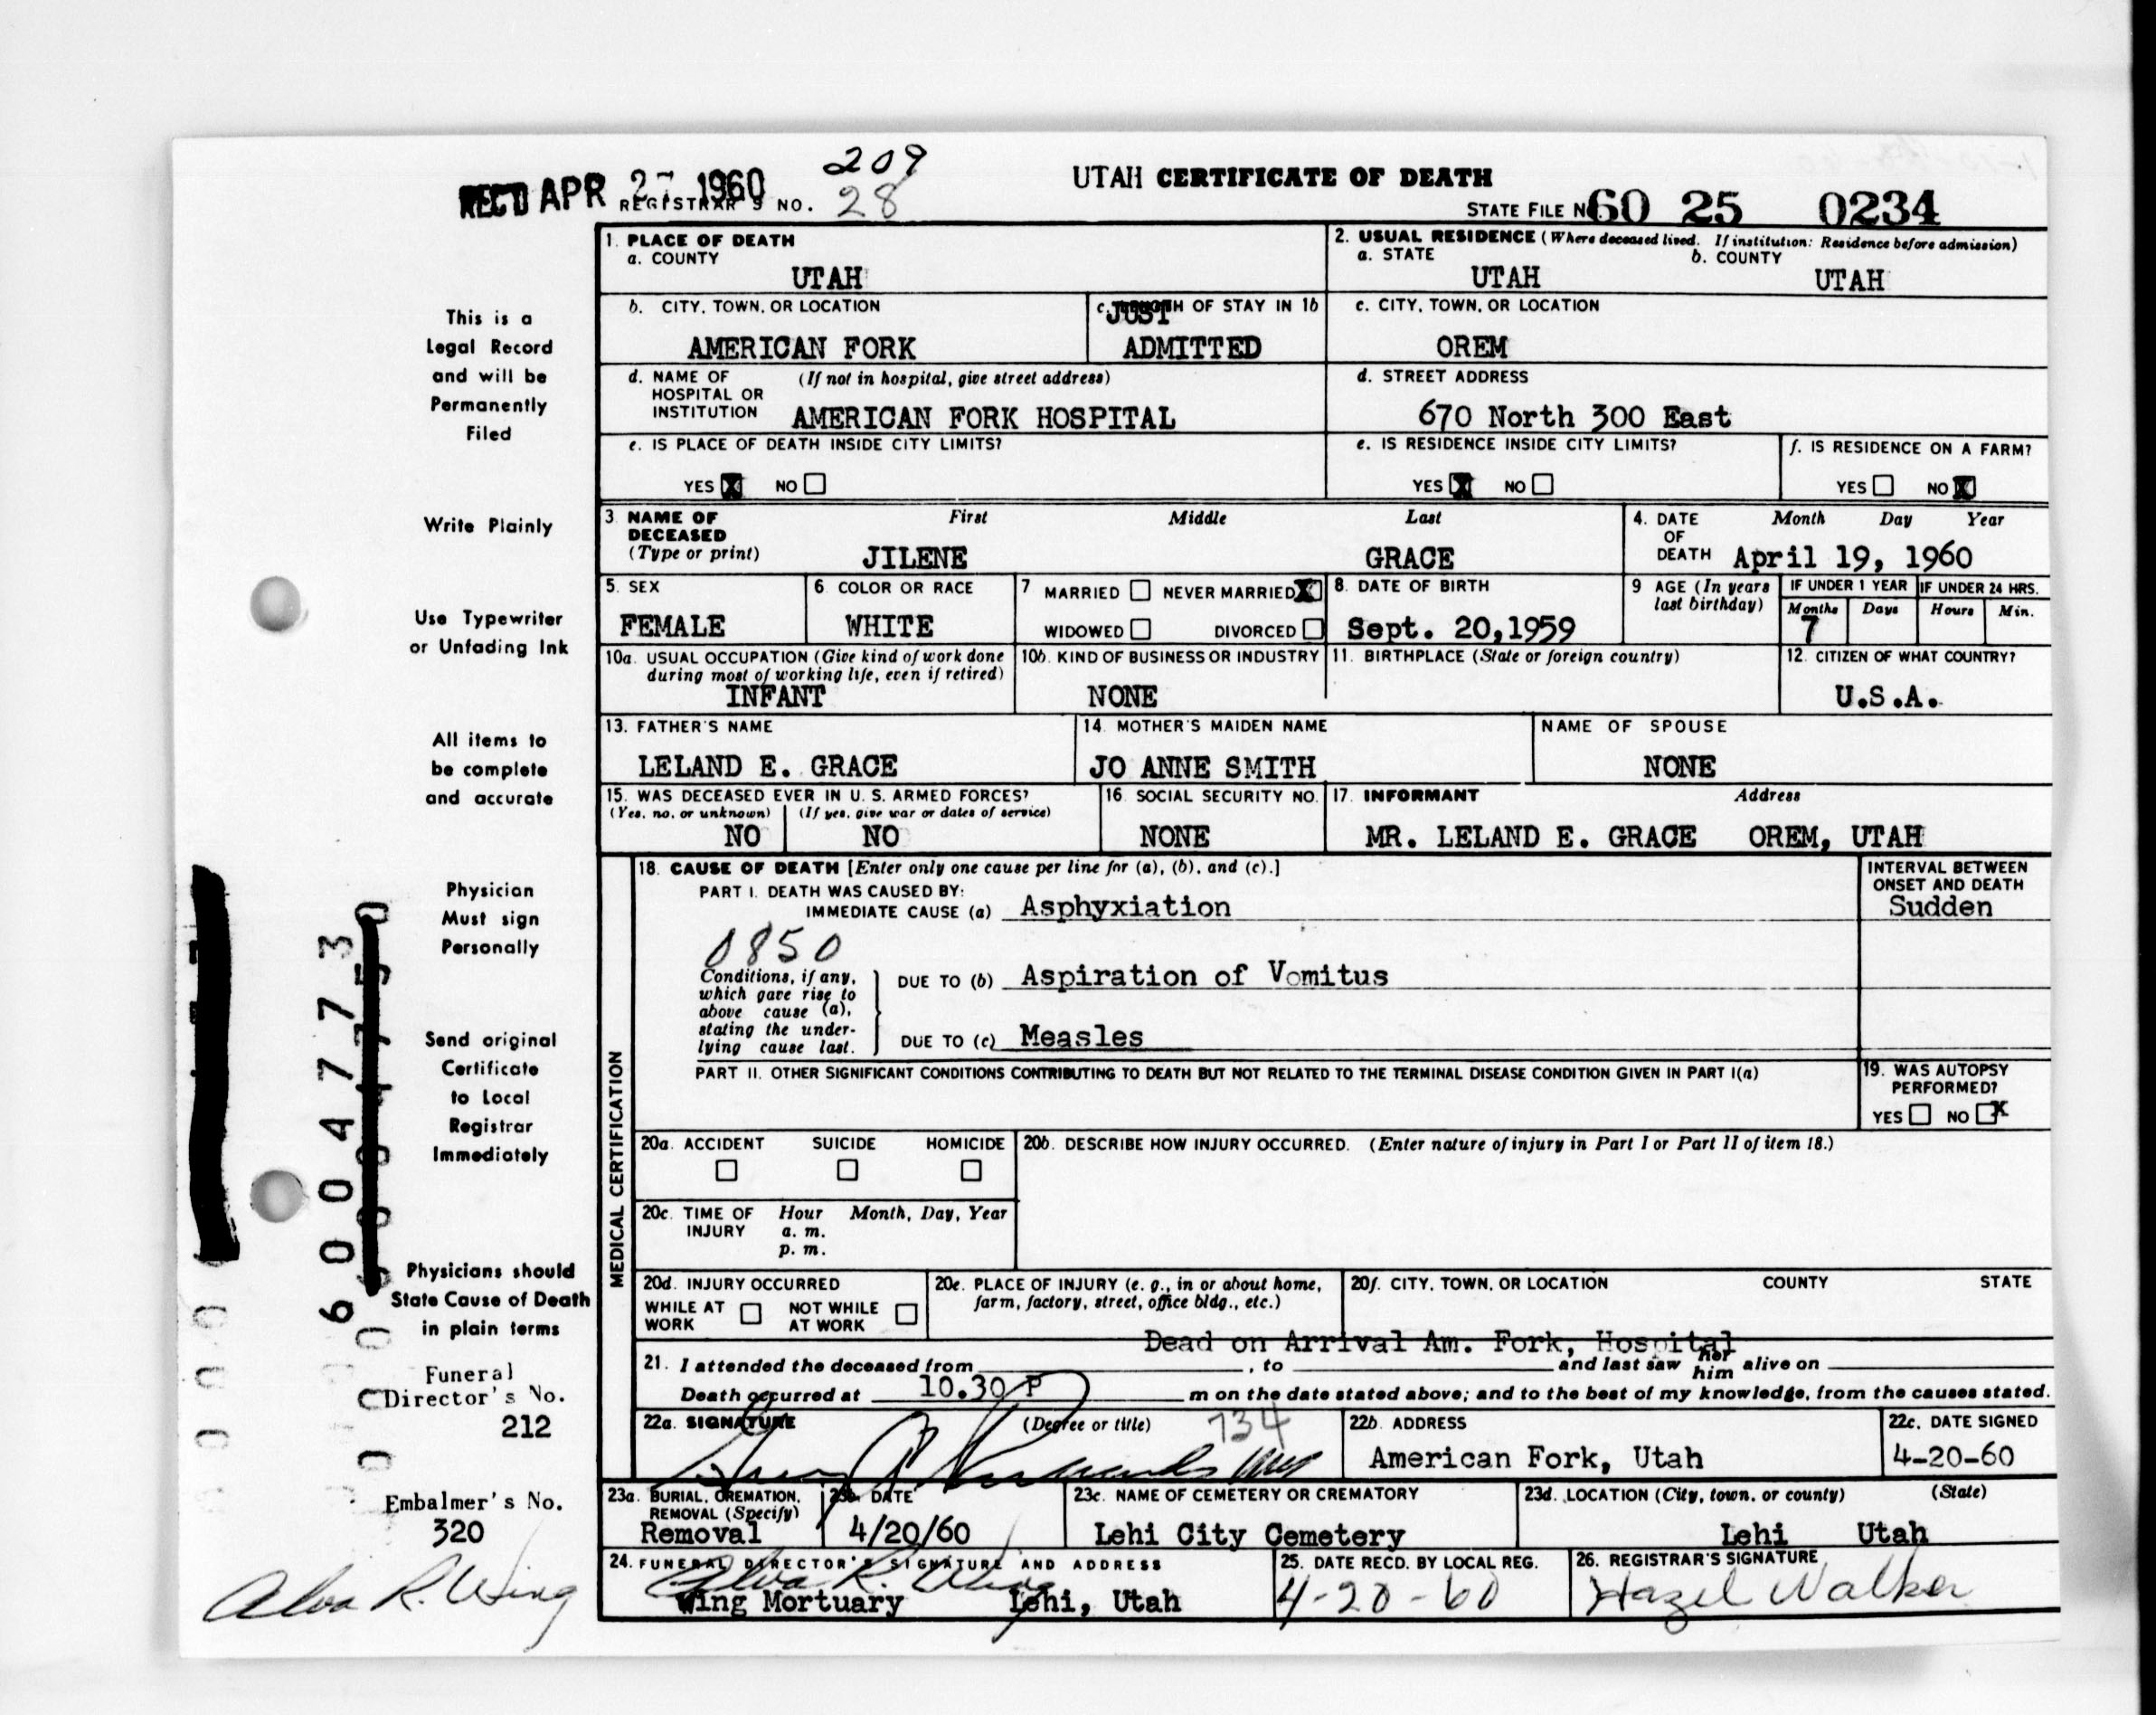 REC'D APR 27 1960
REGISTRAR'S NO. 209
28
UTAH CERTIFICATE OF DEATH
STATE FILE NO. 60 25 0234
1. PLACE OF DEATH
a. COUNTY
UTAH
2. USUAL RESIDENCE (Where deceased lived. If institution: Residence before admission)
a. STATE
UTAH
b. COUNTY
UTAH
b. CITY, TOWN, OR LOCATION
AMERICAN FORK
c. LENGTH OF STAY IN 1b
JUST
ADMITTED
c. CITY, TOWN, OR LOCATION
OREM
d. NAME OF HOSPITAL OR INSTITUTION
(If not in hospital, give street address)
AMERICAN FORK HOSPITAL
d. STREET ADDRESS
670 North 300 East
e. IS PLACE OF DEATH INSIDE CITY LIMITS?
YES X NO
e. IS RESIDENCE INSIDE CITY LIMITS?
YES X NO
f. IS RESIDENCE ON A FARM?
YES NO X
3 NAME OF DECEASED
(Type or print)
First Middle Last
JILENE GRACE
4. DATE OF DEATH
Month Day Year
April 19, 1960
5. SEX
FEMALE
6 COLOR OR RACE
WHITE
7 MARRIED NEVER MARRIED X
WIDOWED DIVORCED
8. DATE OF BIRTH
Sept. 20,1959
9 AGE (In years last birthday)
IF UNDER 1 YEAR IF UNDER 24 HRS.
Months Days Hours Min.
7
10a. USUAL OCCUPATION (Give kind of work done during most of working life, even if retired)
INFANT
10b. KIND OF BUSINESS OR INDUSTRY
NONE
11. BIRTHPLACE (State or foreign country)
12. CITIZEN OF WHAT COUNTRY?
U.S.A.
13. FATHER'S NAME
LELAND E. GRACE
14. MOTHER'S MAIDEN NAME
JO ANNE SMITH
NAME OF SPOUSE
NONE
15. WAS DECEASED EVER IN U. S. ARMED FORCES?
(Yes, no, or unknown) (If yes, give war or dates of service)
NO NO
16. SOCIAL SECURITY NO.
NONE
17. INFORMANT Address
MR. LELAND E. GRACE OREM, UTAH
MEDICAL CERTIFICATION
18. CAUSE OF DEATH [Enter only one cause per line for (a), (b), and (c).]
PART I. DEATH WAS CAUSED BY:
IMMEDIATE CAUSE (a) Asphyxiation
INTERVAL BETWEEN ONSET AND DEATH
Sudden
0850
Conditions, if any, which gave rise to above cause (a), stating the underlying cause last.
DUE TO (b) Aspiration of Vomitus
DUE TO (c) Measles
PART II. OTHER SIGNIFICANT CONDITIONS CONTRIBUTING TO DEATH BUT NOT RELATED TO THE TERMINAL DISEASE CONDITION GIVEN IN PART I(a)
19. WAS AUTOPSY PERFORMED?
YES NO X
20a. ACCIDENT SUICIDE HOMICIDE
20b. DESCRIBE HOW INJURY OCCURRED. (Enter nature of injury in Part I or Part II of item 18.)
20c. TIME OF INJURY
Hour Month, Day, Year
a. m.
p. m.
20d. INJURY OCCURRED
WHILE AT WORK NOT WHILE AT WORK
20e. PLACE OF INJURY (e. g., in or about home, farm, factory, street, office bldg., etc.)
20f. CITY, TOWN, OR LOCATION COUNTY STATE
Dead on Arrival Am. Fork, Hospital
21. I attended the deceased from , to and last saw her him alive on
Death occurred at 10.30 P m on the date stated above; and to the best of my knowledge, from the causes stated.
22a. SIGNATURE (Degree or title)
734
22b. ADDRESS
American Fork, Utah
22c. DATE SIGNED
4-20-60
23a. BURIAL, CREMATION, REMOVAL (Specify)
Removal
23b. DATE
4/20/60
23c. NAME OF CEMETERY OR CREMATORY
Lehi City Cemetery
23d. LOCATION (City, town, or county) (State)
Lehi Utah
24. FUNERAL DIRECTOR'S SIGNATURE AND ADDRESS
Alva R. Wing
Wing Mortuary Lehi, Utah
25. DATE RECD. BY LOCAL REG.
4-20-60
26. REGISTRAR'S SIGNATURE
Hazel Walker
This is a
Legal Record
and will be
Permanently
Filed
Write Plainly
Use Typewriter
or Unfading Ink
All items to
be complete
and accurate
Physician
Must sign
Personally
Send original
Certificate
to Local
Registrar
Immediately
Physicians should
State Cause of Death
in plain terms
Funeral
Director's No.
212
Embalmer's No.
320
Alva R. Wing
6004773